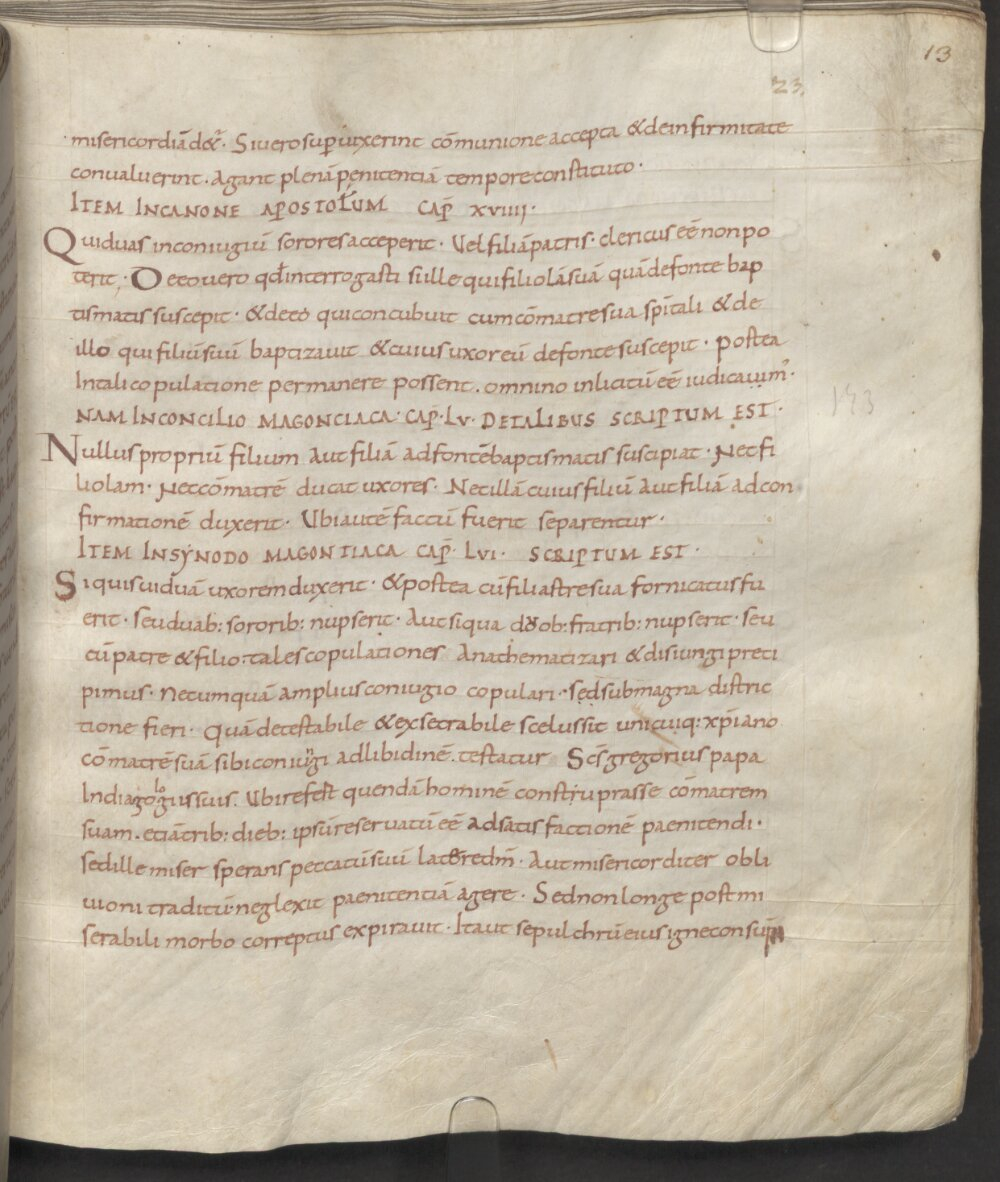 13
23
misericordiā dēr̄. Si vero sup̄vixerint cōmunione accepta &de infirmitate
convaluerint. Agant plenā penitentiā tempore constituto.
ITEM IN CANONE APOSTOLUM CAP̄ XVIIII.
Qui duas in coniugiū sorores acceperit. Vel filiā patris. clericus eē non po
terit; De eo vero qđ interrogasti si ille qui filiolā suā quā de fonte bap
tismatis suscepit. &de eo qui concubuit cum cōmatre sua sp̄itali &de
illo qui filiū suū baptizavit &cuius uxor eū de fonte suscepit. postea
In tali copulatione permanere possent. omnino inlicitū eē iudicavim᾽.
NAM IN CONCILIO MAGONCIACA. CAP̄. LV. DE TALIBUS SCRIPTUM EST.
Nullus propriū filium Aut filiā ad fontē baptismatis suscipiat. Nec fi
liolam. Nec cōmatrē ducat uxores. Nec illā cuius filiū Aut filiā ad con
firmationē duxerit. Ubi autē factū fuerit separentur.
ITEM IN SYNODO MAGONTIACA CAP̄. LVI. SCRIPTUM EST.
Si quis viduā uxorem duxerit. &postea cū filiastre sua fornicatus fu
erit. seu duab: sororib: nupserit. Aut si qua duob: fratrib: nupserit. seu
cū patre &filio. tales copulationes Anathematizari &disiungi preci
pimus. Nec umquā amplius coniugio copulari. sed sub magna distric
tione fieri. Quā detestabile &exsecrabile scelus sit unicuiq: xp̄iano
cōmatrē suā sibi coniungi ad libidinē. testatur Scs̄ gregorius papa
In dialogogiis suis. Ubi refert quendā hominē construprasse cōmatrem
suam. etiā trib: dieb: ipsū reservatū eē ad satisfactionē paenitendi.
sed ille miser sperans peccatū suū latere dm̄. Aut misericorditer obli
vioni traditū. neglexit paenitentiā agere. Sed non longe post mi
serabili morbo correptus expiravit. Ita ut sepulchrū eius igne consūp
143